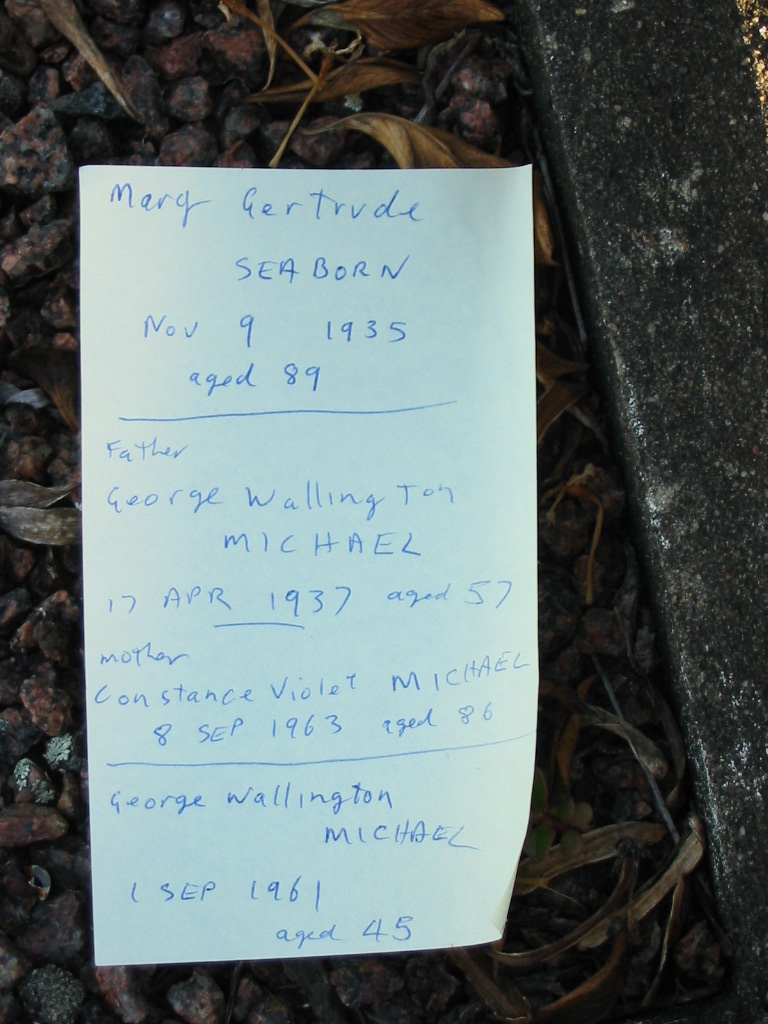 Mary Gertrude
SEABORN
Nov 9 1935
aged 89
Father
George Wallington
MICHAEL
17 APR 1937 aged 57
mother
Constance Violet MICHAEL
8 SEP 1963 aged 86
George Wallington
MICHAEL
1 SEP 1961
aged 45